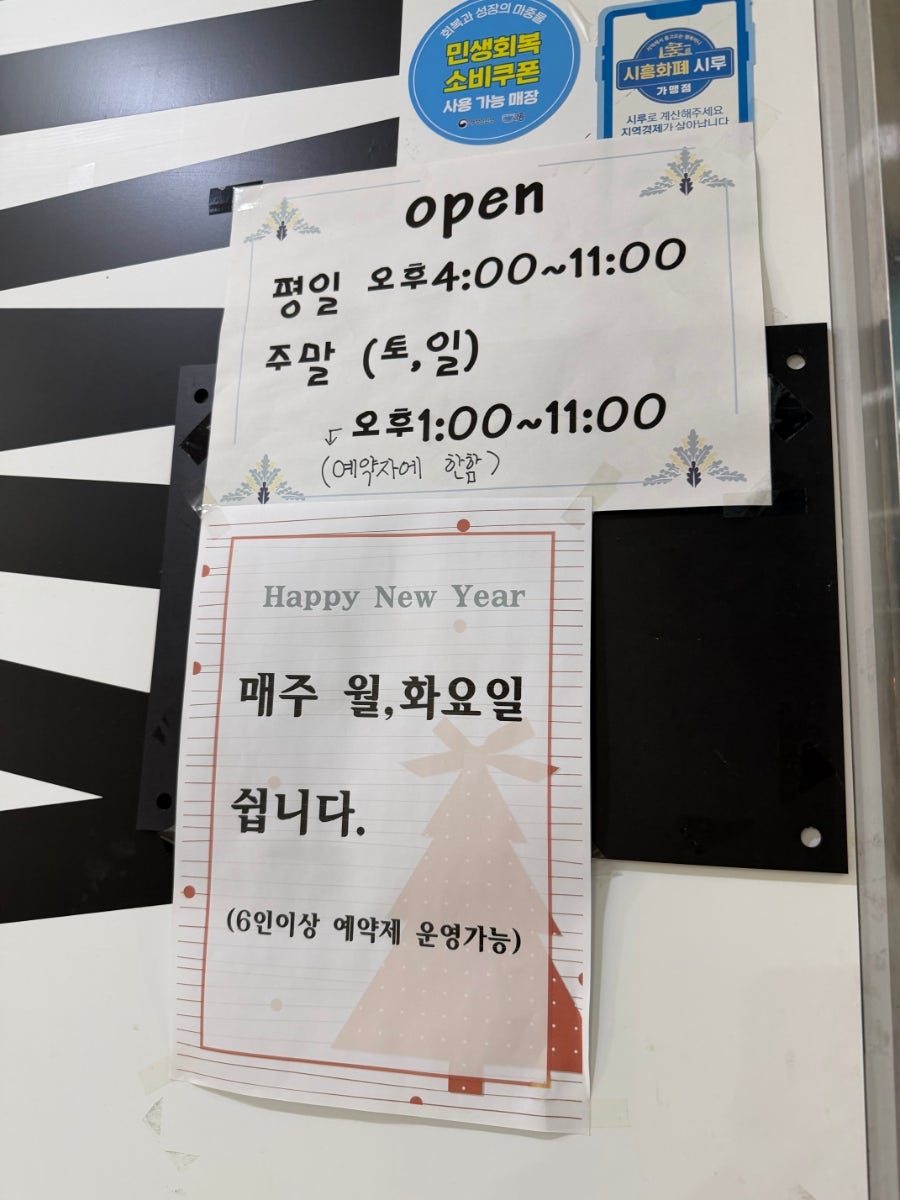 회복과 성장의 마중물
민생회복
소비쿠폰
사용 가능 매장
시흥화폐 시루
가맹점
시루로 계산해주세요
지역경제가 살아납니다
open
평일 오후4:00~11:00
주말 (토,일)
오후1:00~11:00
(예약자에 한함)
Happy New Year
매주 월,화요일
쉽니다.
(6인이상 예약제 운영가능)